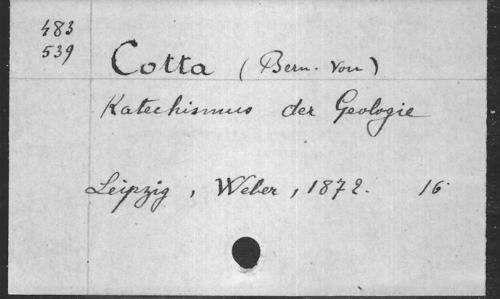 483
539
Cotta (Bern. von)
Katechismus der Geologie
Leipzig, Weber, 1872. 16°